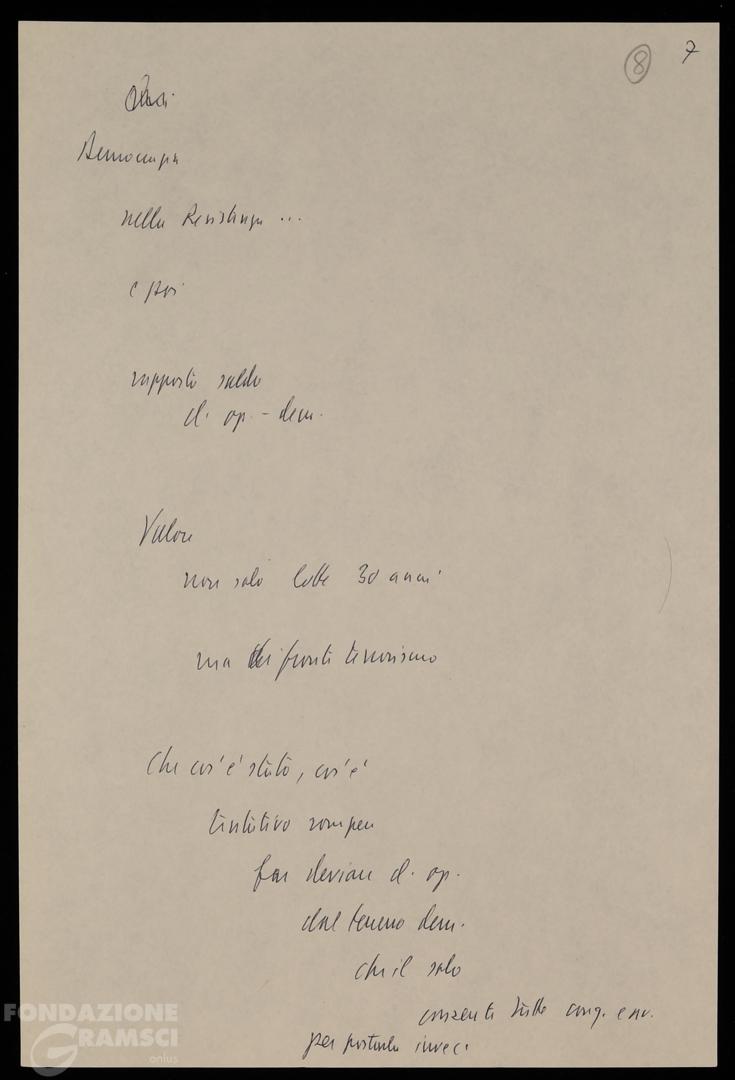 7
8
Democrazia
nella Resistenza ...
e poi
rapporto saldo
cl. op. - dem.
Valore
non solo lotte 30 anni
ma di fronte terrorismo
Che cos'è stato, cos'è
tentativo rompere
far deviare cl. op.
dal terreno dem.
che il solo
consente tutte conq. e av.
per portarla invece
FONDAZIONE
GRAMSCI
onlus